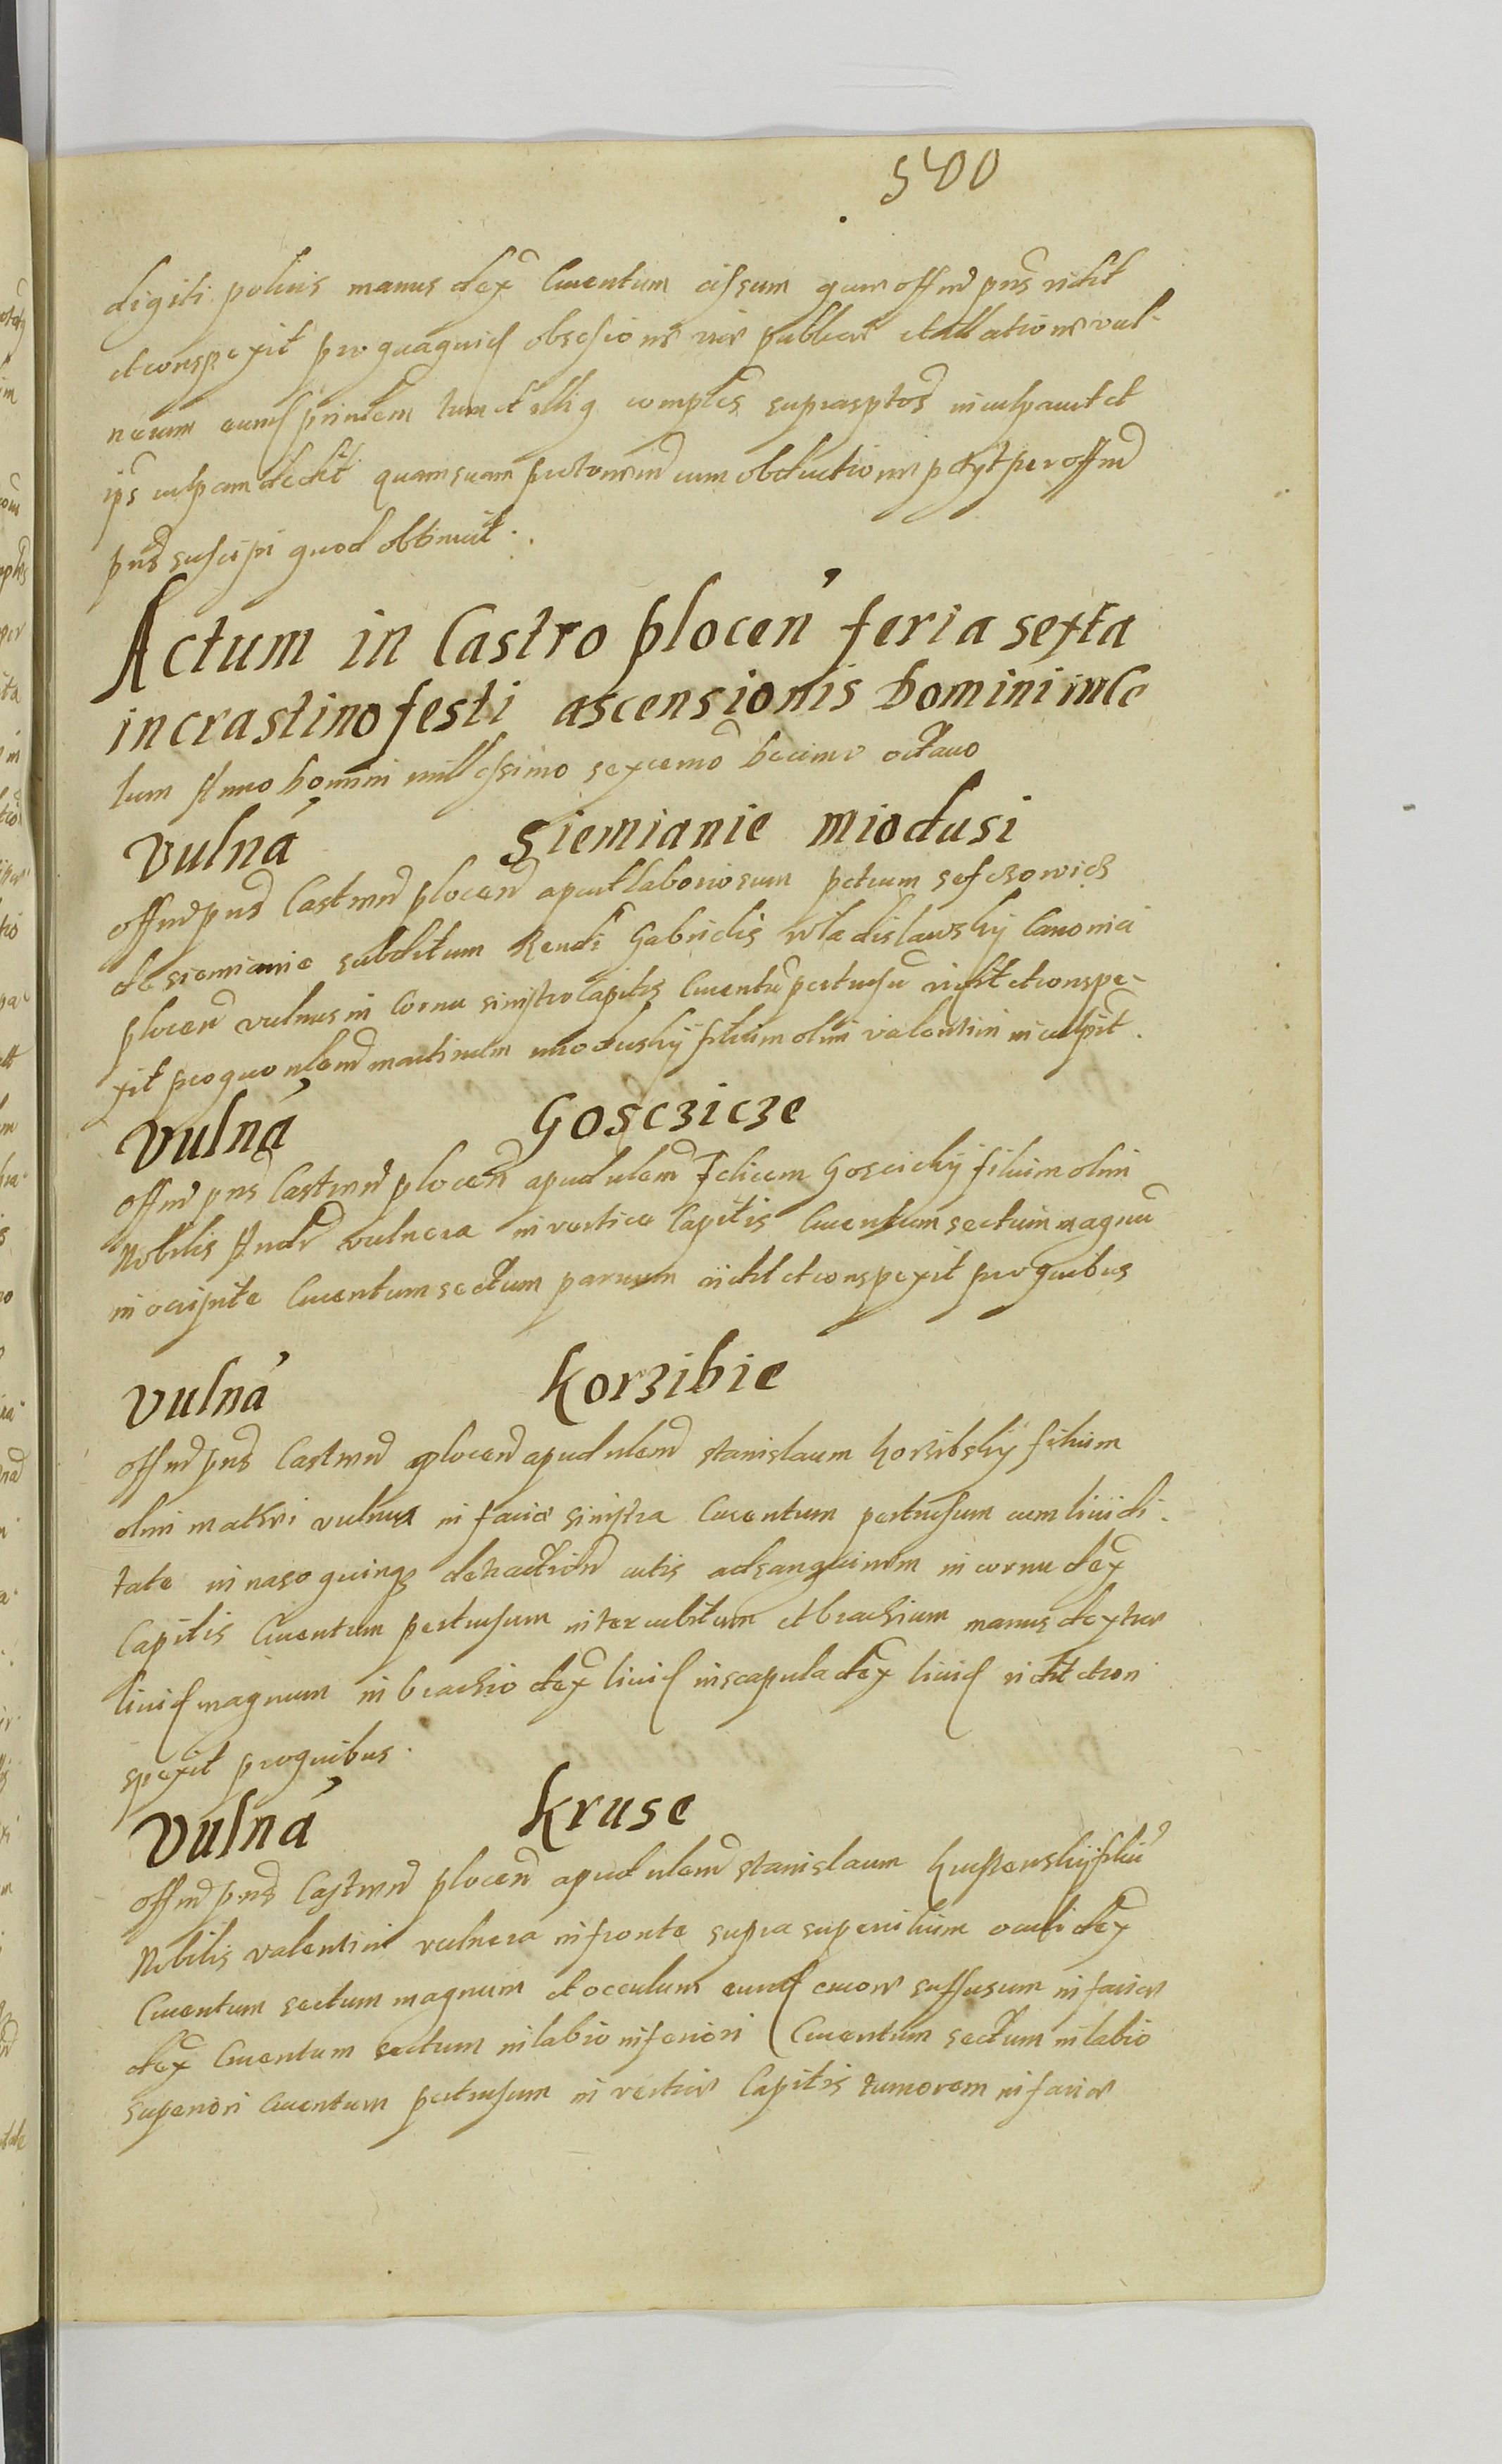 500
digiti polcis manus dex Cruentum cissum quam offm pns vidit
et conspexit pro quaquid obsessione vie publicae et illatione vul-
nerum eund principalem tum et illig complces suprasptos inculpavit et
ips culpam dedit quam suam protonem cum obductione petyt per offm
pns suscipi quod obtinuit.
Actum in Castro plocen feria sexta
in crastino festi ascensionis Domini ince
tum Anno Domini millesimo sexcenmo Decimo octavo
Vulna Siemianie miodusi
offm pns Castren plocen aput laboriosum petrum sefczowicz
de siemianie subditum Rendi Gabrielis wladislawsky Canonici
plocen vulnus in Cornu sinistro Capitis Cruentu pertusu vidit et conspe-
xit pro quo nlem martinum miodusky filium olim valentini inculpit.
Vulna Gosczicze
offm pns Castren plocen apud nlem Felicem Goscicky filium olim
Nobilis Andr vulnera in vertice Capitis Cruentum sectum magnu
in occipite Cruentum sectum parvum vidit et conspexit pro quibus
Vulna Korzibie
offm pns Castren plocen apud nlem stanislaum korzibsky filium
olim mathei vulnera in facie sinistra Cruentum pertusum cum lividi-
tate in naso quinq detraction cutis ad sanguinem in cornu dex
Capitis Cruentum pertusum inter cubitum et brachium manus dextrae
livid magnum in brachio dex livid in scapula dex livid vidit et con
spexit pro quibus.
Vulna Kruse
offm pns Castren plocen apud nlem stanislaum krussewsky filiu
Nobilis valentini vulnera in fronte supra supercilium oculi dex
Cruentum sectum magnum et occulum eund cruore suffusum in facie
dex Cruentum sectum in labio inferiori Cruentum sectum in labio
superiori Cruentum pertusum in vertice Capitis tumorem in facie